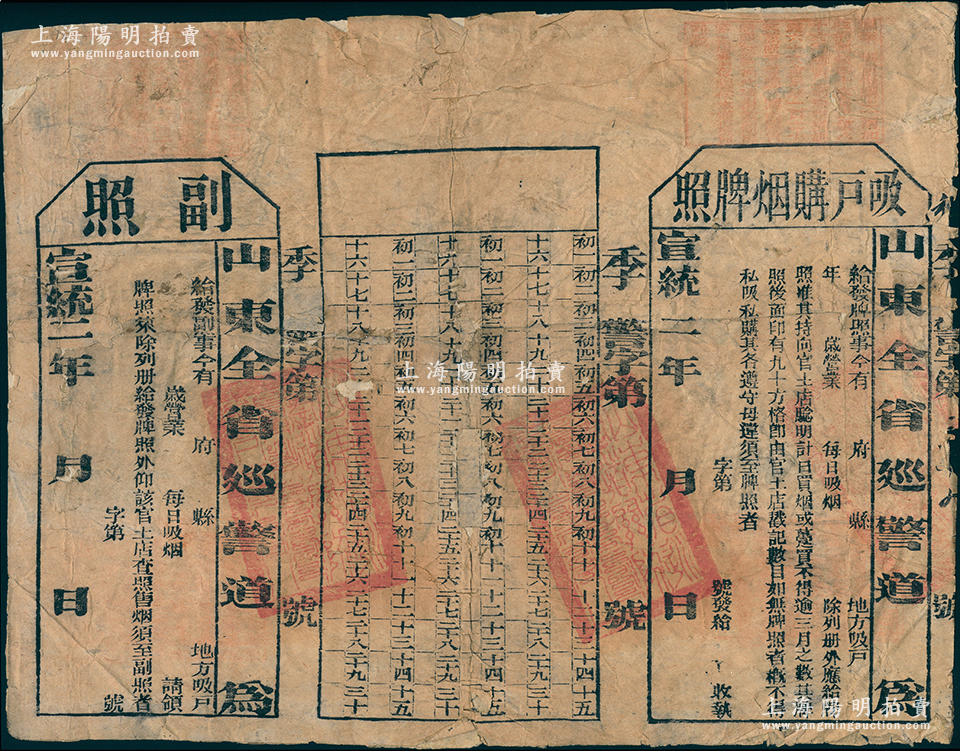 上海陽明拍賣
www.yangmingauction.com
吸戶購烟牌照
山東全省廵警道為
給發牌照事今有 府 縣 地方吸戶
年 歲營業 每日吸烟 除列册外應給牌
照准其持向官土店驗明計日買烟或躉買不得逾三月之數其牌
照後面印有九十方格卽由官土店戳記數目如無牌照者概不得
私吸私購其各遵守毋違須至牌照者
字第 號發給 收執
宣統二年 月 日
季 警字第 號
初一初二初三初四初五初六初七初八初九初十十一十二十三十四十五
十六十七十八十九二十二十一二十二二十三二十四二十五二十六二十七二十八二十九三十
初一初二初三初四初五初六初七初八初九初十十一十二十三十四十五
十六十七十八十九二十二十一二十二二十三二十四二十五二十六二十七二十八二十九三十
初一初二初三初四初五初六初七初八初九初十十一十二十三十四十五
十六十七十八十九二十二十一二十二二十三二十四二十五二十六二十七二十八二十九三十
季 警字第 號
副照
山東全省廵警道為
給發副事今有 府 縣 地方吸戶
歲營業 每日吸烟 請領
牌照來除列册給發牌照外仰該官土店查照售烟須至副照者
字第 號
宣統二年 月 日
上海陽明拍賣
www.yangmingauction.com
上海陽明拍賣
www.yangmingauction.com